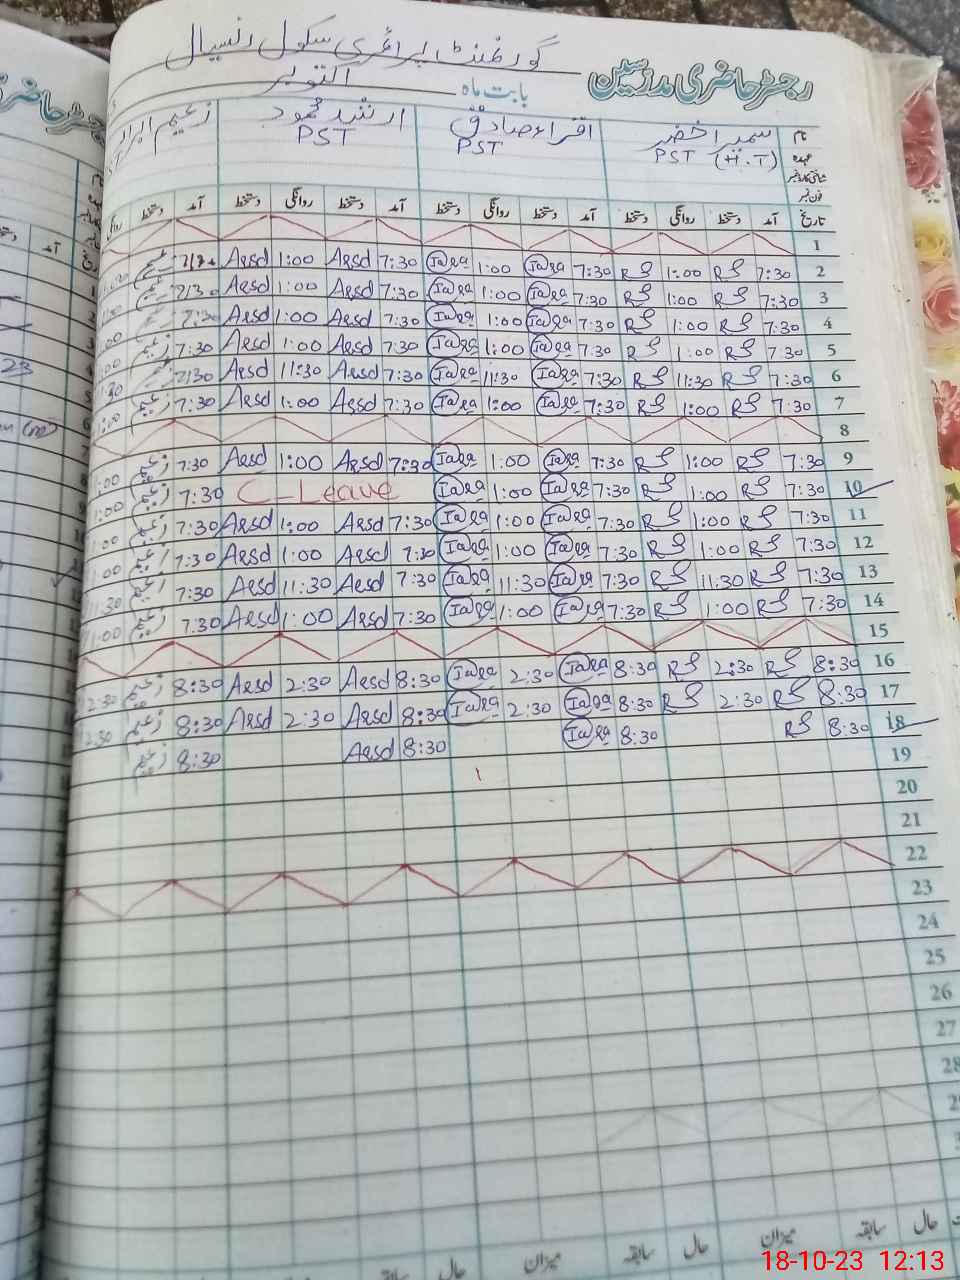 گورنمنٹ پرائمری سکول انسیال
رجسٹر حاضری مدرسین
بابت ماہ اکتوبر
نام سمیرا خضر اقراء صادق ارشد محمود زعیم
عہدہ PST (H.T) PST PST
شناختی کارڈ نمبر
فون نمبر
تاریخ آمد دستخط روانگی دستخط آمد دستخط روانگی دستخط آمد دستخط روانگی دستخط آمد دستخط
1
2 7:30 RS 1:00 RS 7:30 Iqra 1:00 Iqra 7:30 Arsd 1:00 Arsd 7:30 زعیم
3 7:30 RS 1:00 RS 7:30 Iqra 1:00 Iqra 7:30 Arsd 1:00 Arsd 7:30 زعیم
4 7:30 RS 1:00 RS 7:30 Iqra 1:00 Iqra 7:30 Arsd 1:00 Arsd 7:30 زعیم
5 7:30 RS 1:00 RS 7:30 Iqra 1:00 Iqra 7:30 Arsd 1:00 Arsd 7:30 زعیم
6 7:30 RS 11:30 RS 7:30 Iqra 11:30 Iqra 7:30 Arsd 11:30 Arsd 7:30 زعیم
7 7:30 RS 1:00 RS 7:30 Iqra 1:00 Iqra 7:30 Arsd 1:00 Arsd 7:30 زعیم 1:00
8
9 7:30 RS 1:00 RS 7:30 Iqra 1:00 Iqra 7:30 Arsd 1:00 Arsd 7:30 زعیم 1:00
10 7:30 RS 1:00 RS 7:30 Iqra 1:00 Iqra C-Leave 7:30 زعیم 1:00
11 7:30 RS 1:00 RS 7:30 Iqra 1:00 Iqra 7:30 Arsd 1:00 Arsd 7:30 زعیم 1:00
12 7:30 RS 1:00 RS 7:30 Iqra 1:00 Iqra 7:30 Arsd 1:00 Arsd 7:30 زعیم 1:00
13 7:30 RS 11:30 RS 7:30 Iqra 11:30 Iqra 7:30 Arsd 11:30 Arsd 7:30 زعیم 11:30
14 7:30 RS 1:00 RS 7:30 Iqra 1:00 Iqra 7:30 Arsd 1:00 Arsd 7:30 زعیم 1:00
15
16 8:30 RS 2:30 RS 8:30 Iqra 2:30 Iqra 8:30 Arsd 2:30 Arsd 8:30 زعیم 2:30
17 8:30 RS 2:30 RS 8:30 Iqra 2:30 Iqra 8:30 Arsd 2:30 Arsd 8:30 زعیم 2:30
18 8:30 RS 8:30 Iqra 8:30 Arsd 8:30 زعیم
19
20
21
22
23
24
25
26
27
28
حال سابقہ میزان حال سابقہ میزان حال سابقہ
18-10-23 12:13